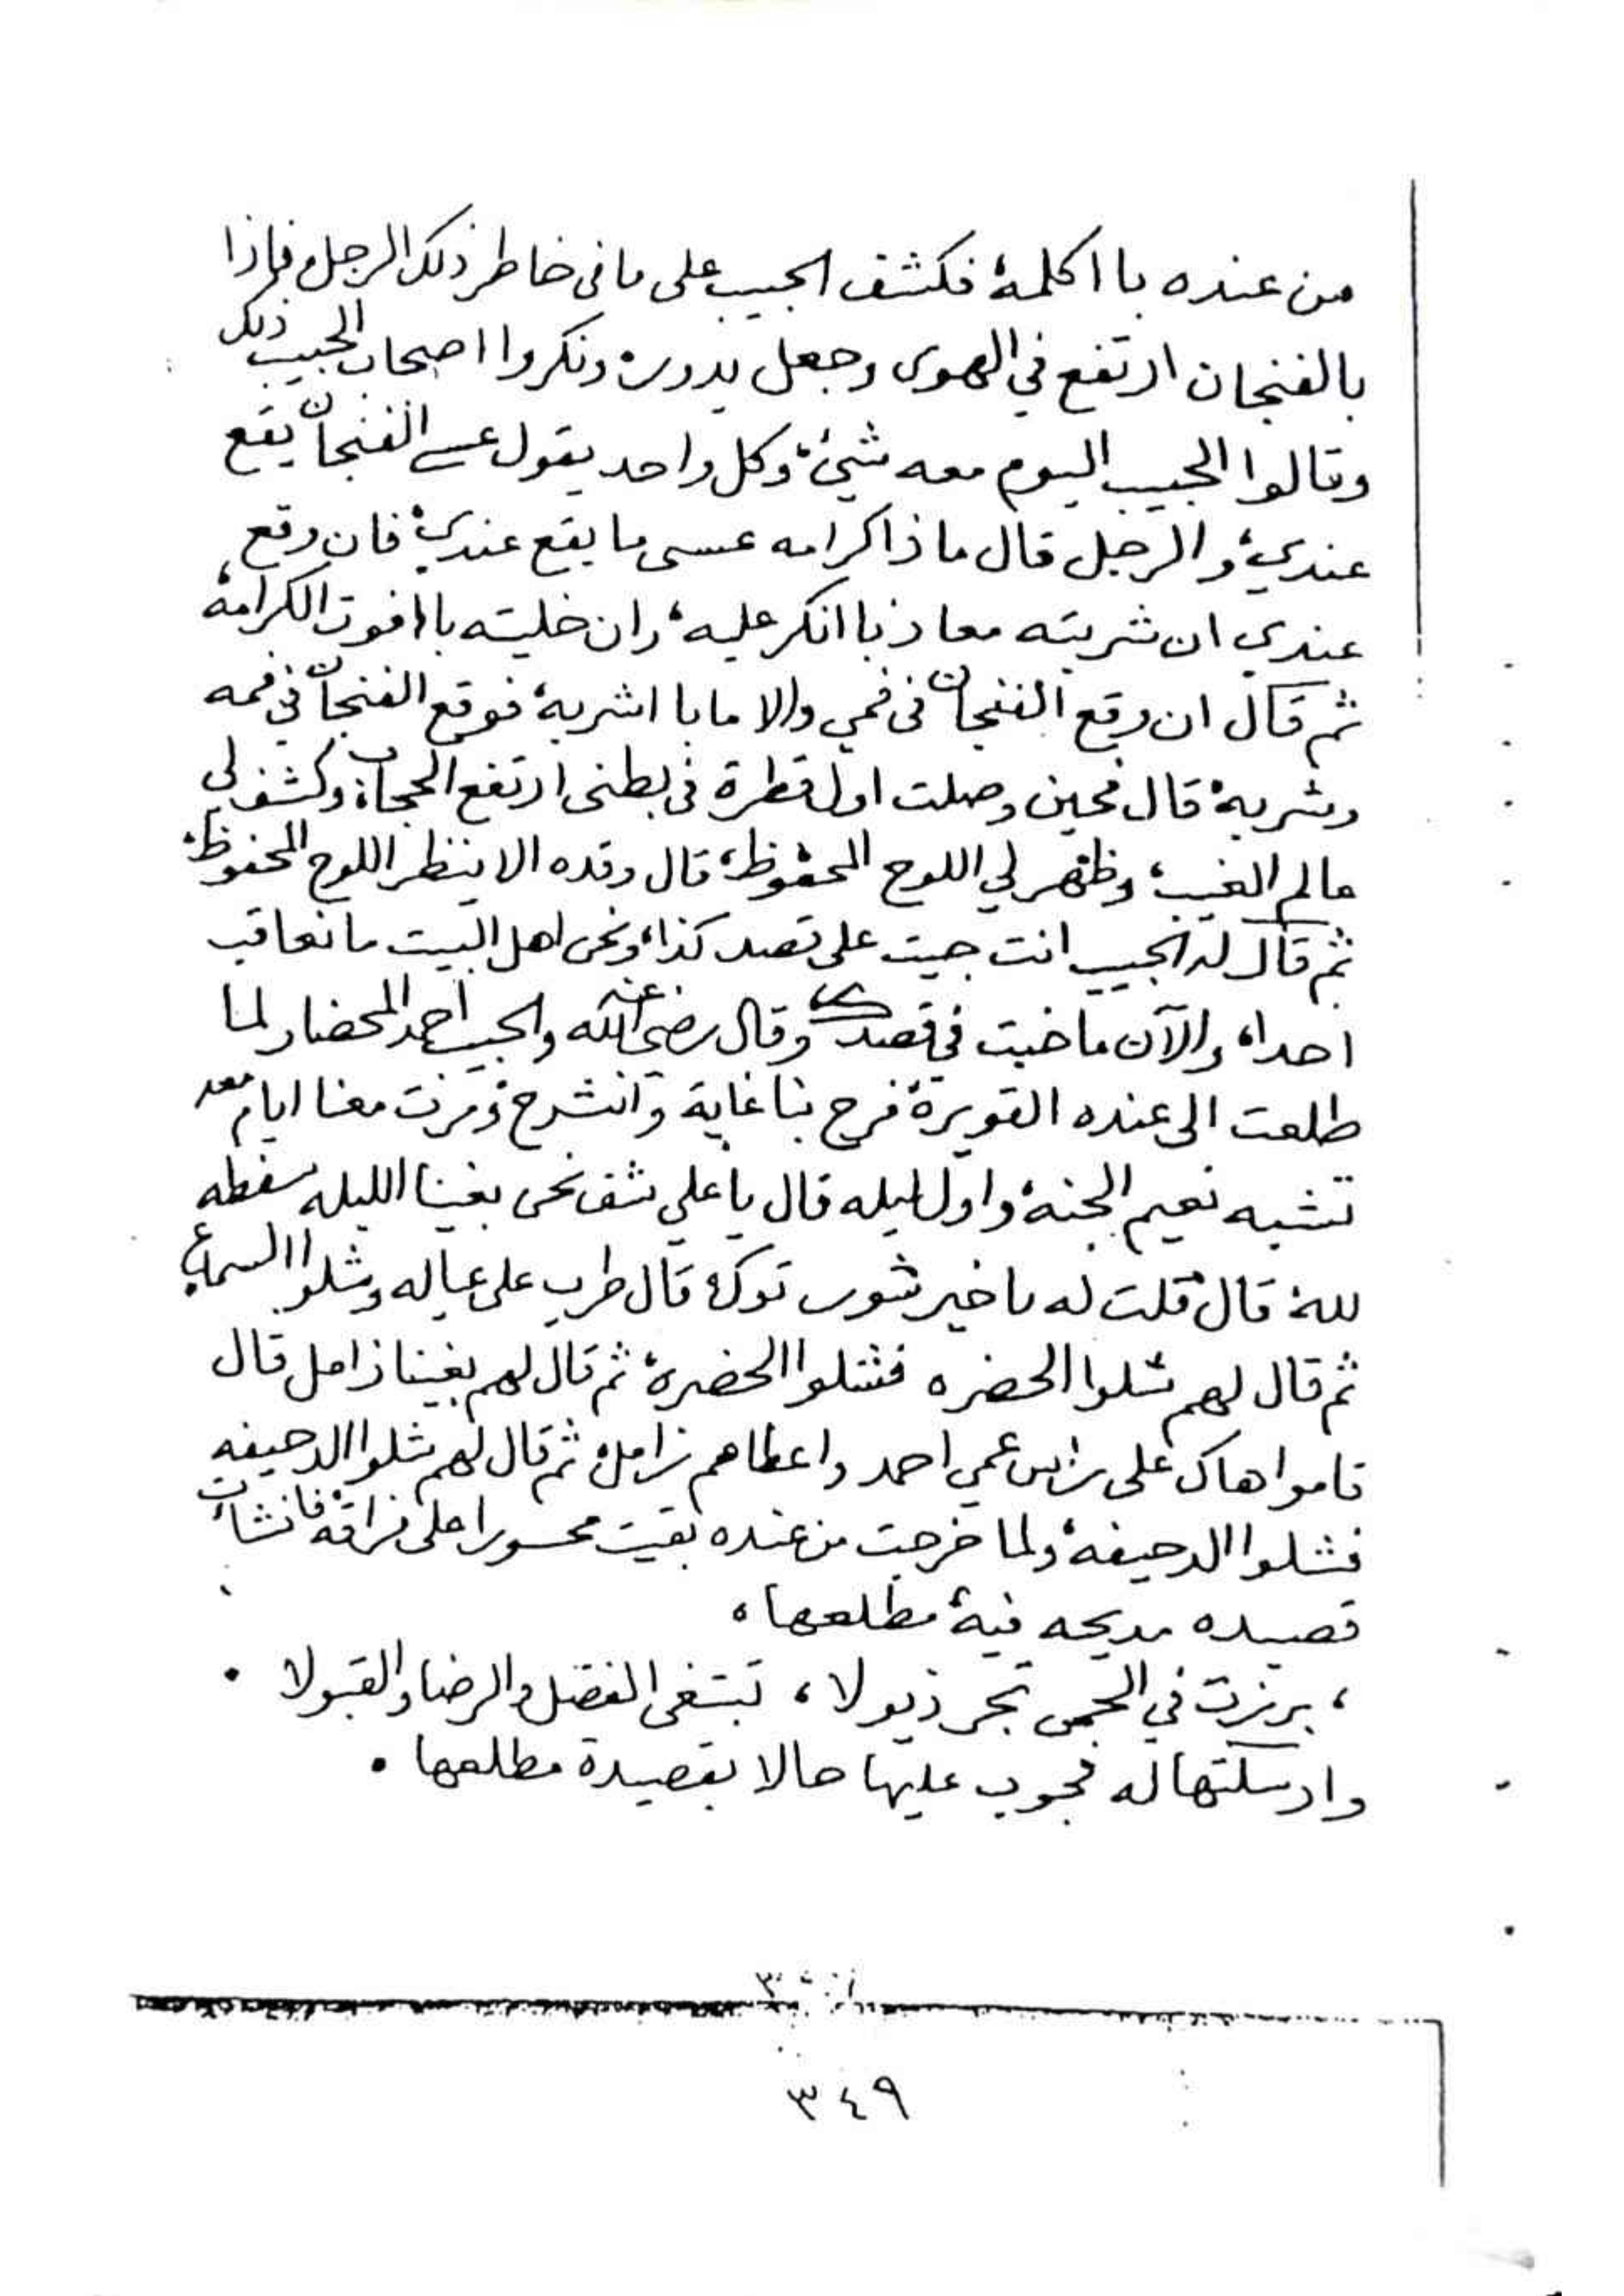 من عنده با اكلمه فكشف الحبيب على ما في خاطر ذلك الرجل فإذا
بالفنجان ارتفع في الهوى وجعل يدور، ونكروا اصحاب الحبيب ذلك
وقالوا الحبيب اليوم معه شيئ، وكل واحد يقول عسى الفنجان يقع
عندي، والرجل قال ماذا كرامه عسى ما يقع عندي، فان وقع
عندي ان شربته معاد با انكر عليه، وان خليته با افوت الكرامة،
ثم قال ان وقع الفنجان في فمي والا ما با اشربه، فوقع الفنجان في فمه
وشربه، قال فحين وصلت اول قطرة في بطني ارتفع الحجاب، وكشف لي
عالم الغيب، وظهر لي اللوح المحفوظ، قال وقده الا ينظر اللوح المحفوظ،
ثم قال له الحبيب انت جيت على قصد كذا، ونحن اهل البيت ما نعاقب
احدا، والآن ما خبت في قصدك وقال رضي الله عنه والحبيب احمد المحضار لما
طلعت الى عنده القويرة، فرح بنا غاية وانشرح ومرت معنا ايام معه
تشبه نعيم الجنة، واول ليله قال يا علي شف نحن بغينا الليله سفطه
لله، قال قلت له ما خير شور توكل، قال طرب على عياله وشلوا السماع
ثم قال لهم شلوا الحضره فشلوا الحضرة، ثم قال لهم بغينا زامل قال
قاموا هاك على راس عمي احمد واعطاهم زامل، ثم قال لهم شلوا الدحيفه
فشلوا الدحيفه، ولما خرجت من عنده بقيت محسورا على فراقه، فانشات
قصيده مديحه فيه، مطلعها،
، برزت في الحجى تجر ذيولا ، تبتغى الفضل والرضا والقبولا .
وارسلتها له فجوب عليها حالا بقصيدة مطلعها .
٣٤٩